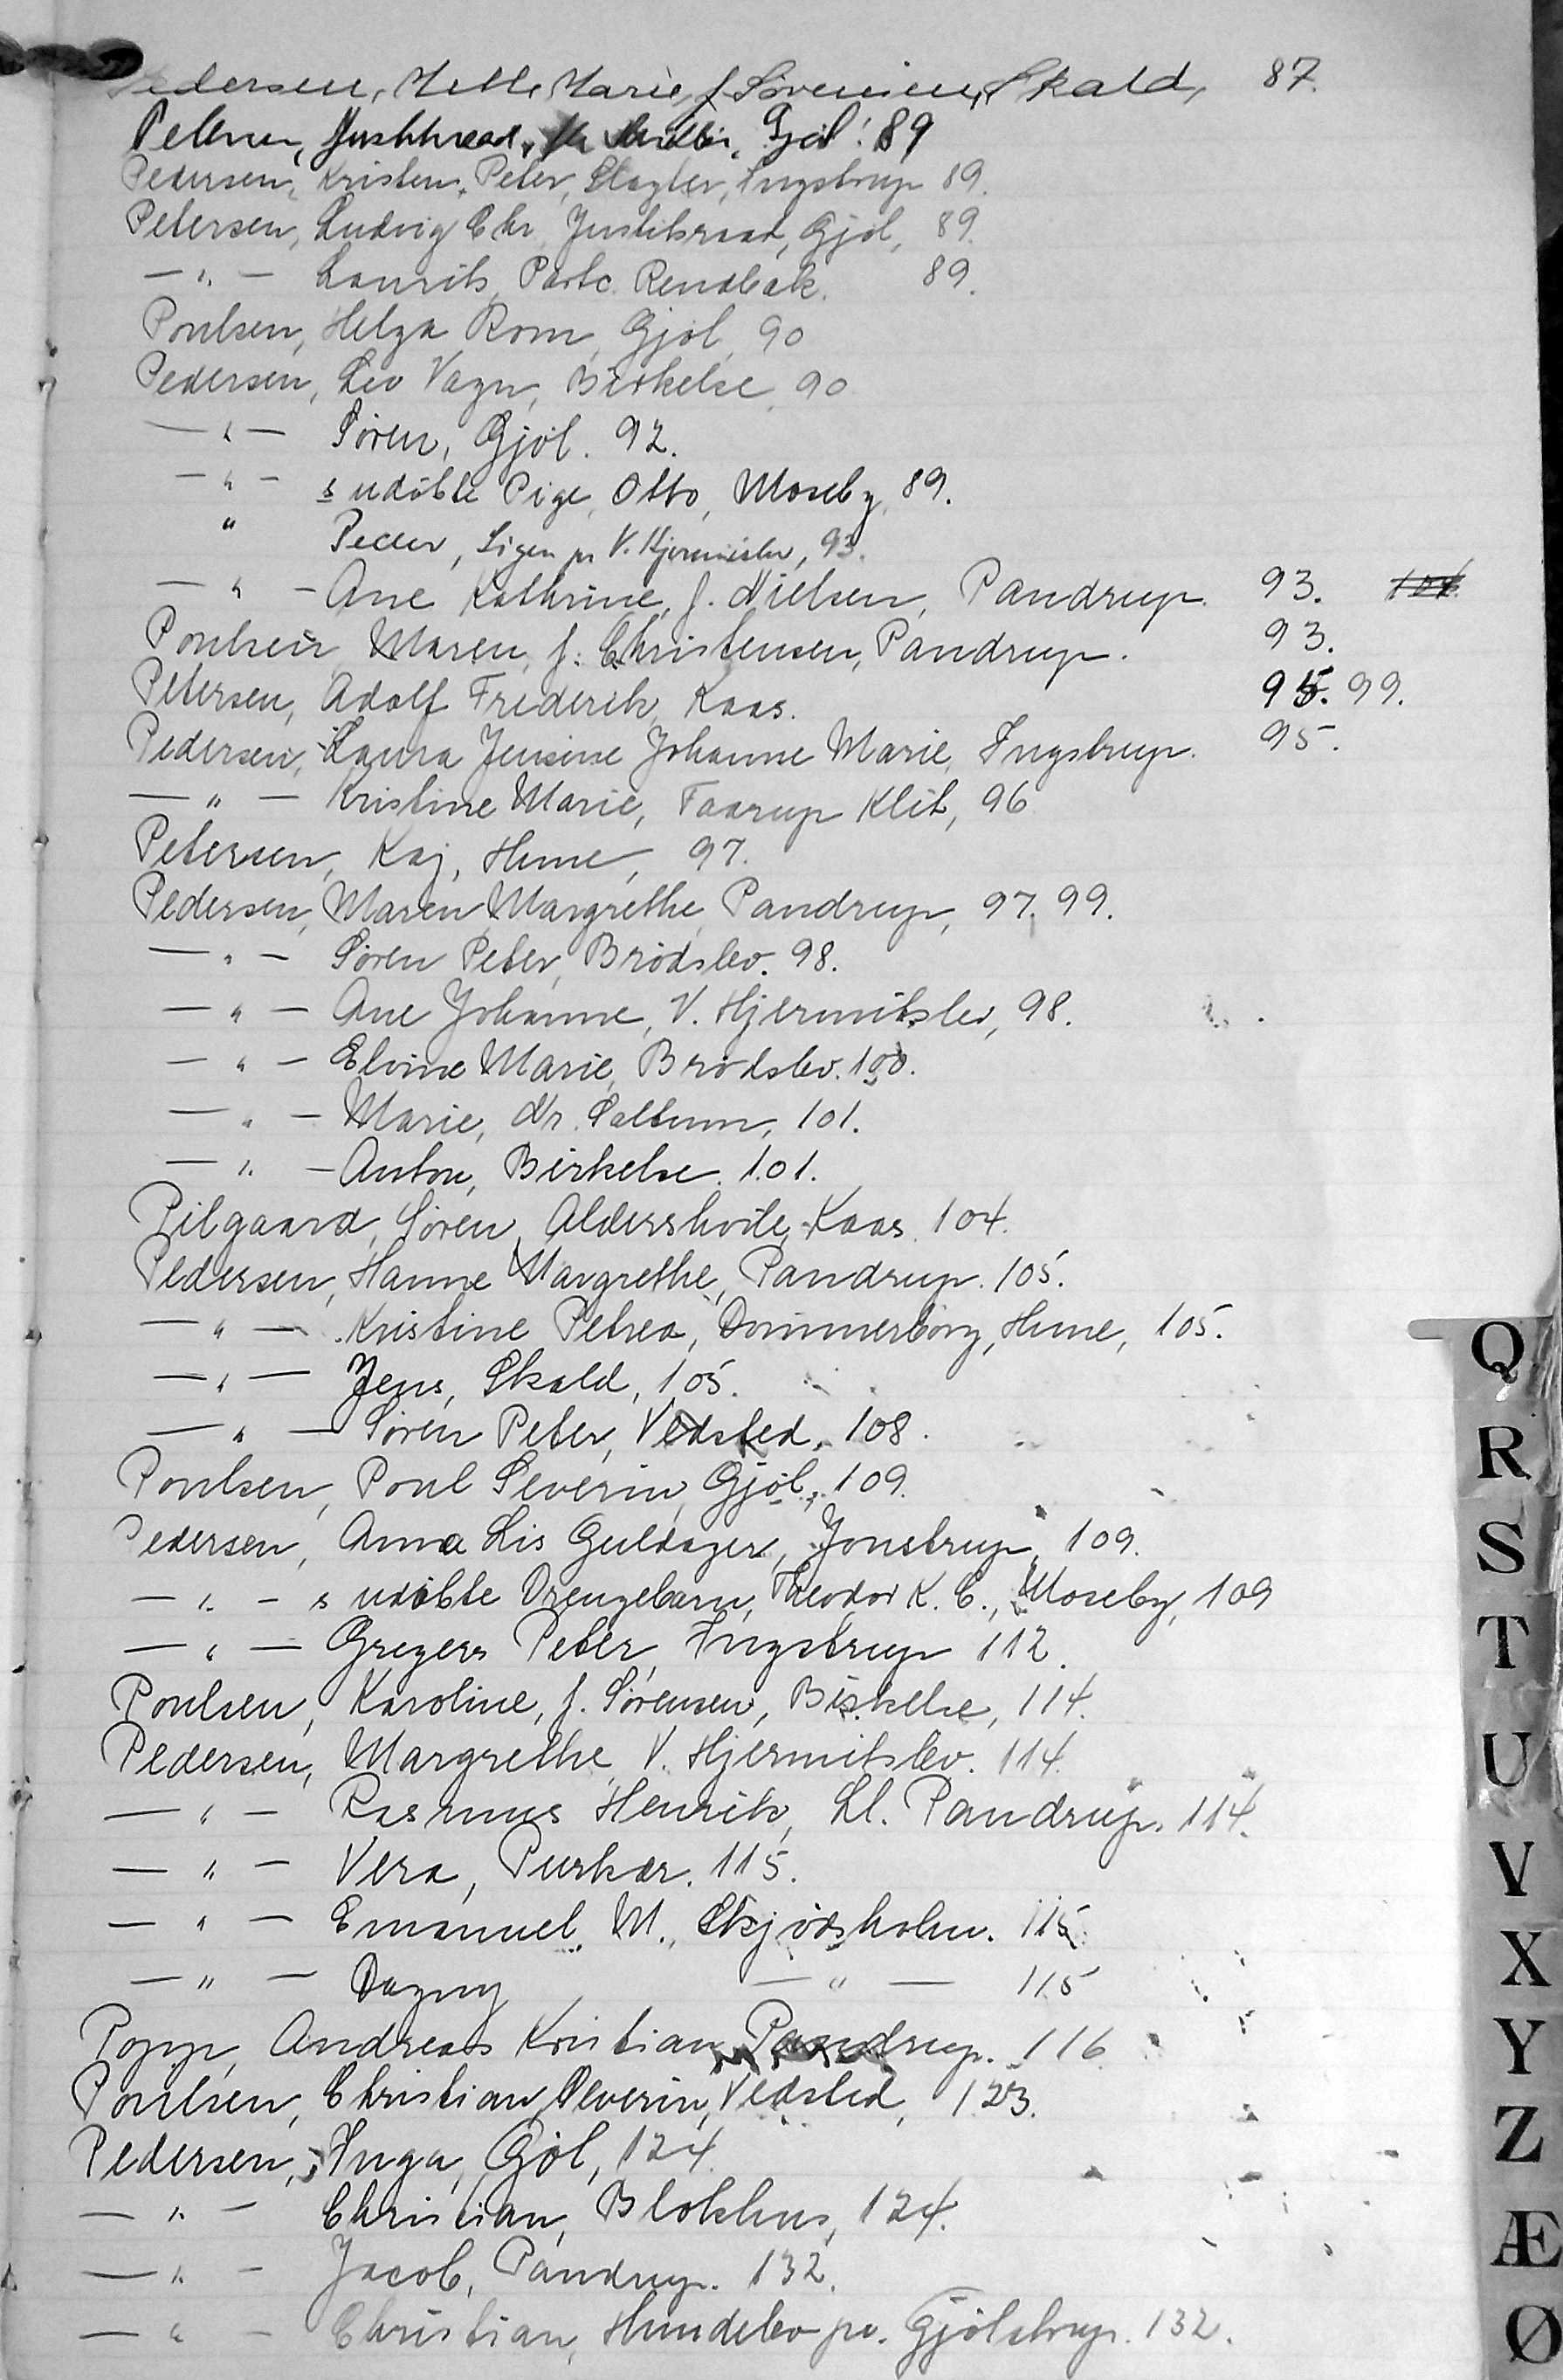 Pedersen, Mette Marie, f. Sørensen, Skald, 87.
Gjøl. 89
Pedersen, Kristen Peter, Slagter, Ingstrup 89.
Petersen, Ludvig Chr. Justitsraad, Gjøl, 89.
— " — Laurits, Partc. Rendbæk. 89.
Poulsen, Helga Rom, Gjøl, 90
Pedersen, Leo Vagn, Birkelse, 90
— " — Søren, Gjøl. 92.
— " — s udøbte Pige, Otto, Moseby, 89.
" Peder, pr V. Hjermitslev, 93.
— " — Ane Kathrine, f. Nielsen, Pandrup. 93.
Poulsen Maren, f. Christensen, Pandrup. 93.
Petersen, Adolf Frederik, Kaas. 95. 99.
Pedersen, Laura Jensine Johanne Marie, Ingstrup. 95.
— " — Kristine Marie, Faarup Klit, 96
Petersen, Kaj, Hune, 97.
Pedersen, Maren Margrethe, Pandrup, 97, 99.
— " — Søren Peter, Brødslev. 98.
— " — Ane Johanne, V. Hjermitslev, 98.
— " — Elvine Marie, Brødslev. 100.
— " — Marie, Nr. Saltum, 101.
— " — Anton, Birkelse. 101.
Pilgaard, Søren, Aldershvile, Kaas. 104.
Pedersen, Hanne Margrethe, Pandrup. 105.
— " — Kristine Petrea, Dommerborg, Hune, 105.
— " — Jens, Skald, 105.
— " — Søren Peter, Vedsted, 108.
Poulsen, Poul Severin, Gjøl, 109.
Pedersen, Anna Lis Guldager, Jonstrup, 109.
— " — s udøbte Drengebarn, Theodor K. C., Moseby, 109
— " — Gregers Peter, Ingstrup 112.
Poulsen, Karoline, f. Sørensen, Birkelse, 114.
Pedersen, Margrethe, V. Hjermitslev. 114.
— " — Rasmus Henrik, Ll. Pandrup. 114.
— " — Vera, Purkær. 115.
— " — Emanuel M., Skjødsholm. 115.
— " — Dagny — " — 115
Popp, Andreas Kristian, Pandrup. 116
Poulsen, Christian Severin, Vedsted, 123.
Pedersen, Inga, Gjøl, 124.
— " — Christian, Blokhus, 124.
— " — Jacob, Pandrup. 132.
— " — Christian, Hundelev pr. Gjølstrup. 132.
Q
R
S
T
U
V
X
Y
Z
Æ
Ø